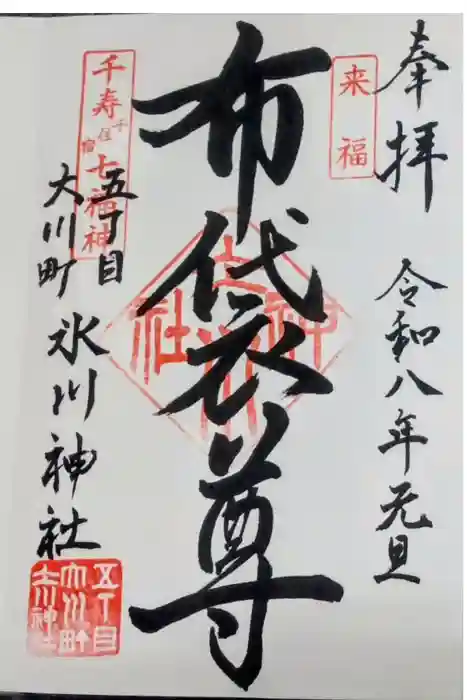 奉拝
令和八年元旦
来福
布袋尊
千寿七福神
千住宿
五丁目
大川町
氷川神社
五丁目
大川町
氷川神社